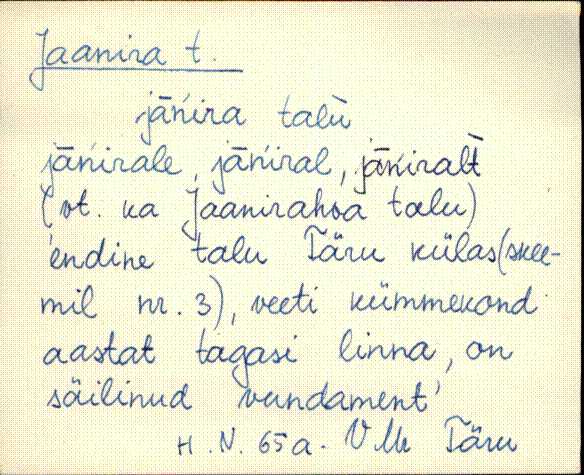 Jaanira t.
jāńira talù
jāńirale, jāńiral, jāńiralt̄
(vt. ka Jaanirahva talu)
'endine talu Täru külas (skee-
mil nr. 3), veeti kümmekond
aastat tagasi linna, on
säilinud vundament'
H. N. 65 a. VMr Täru